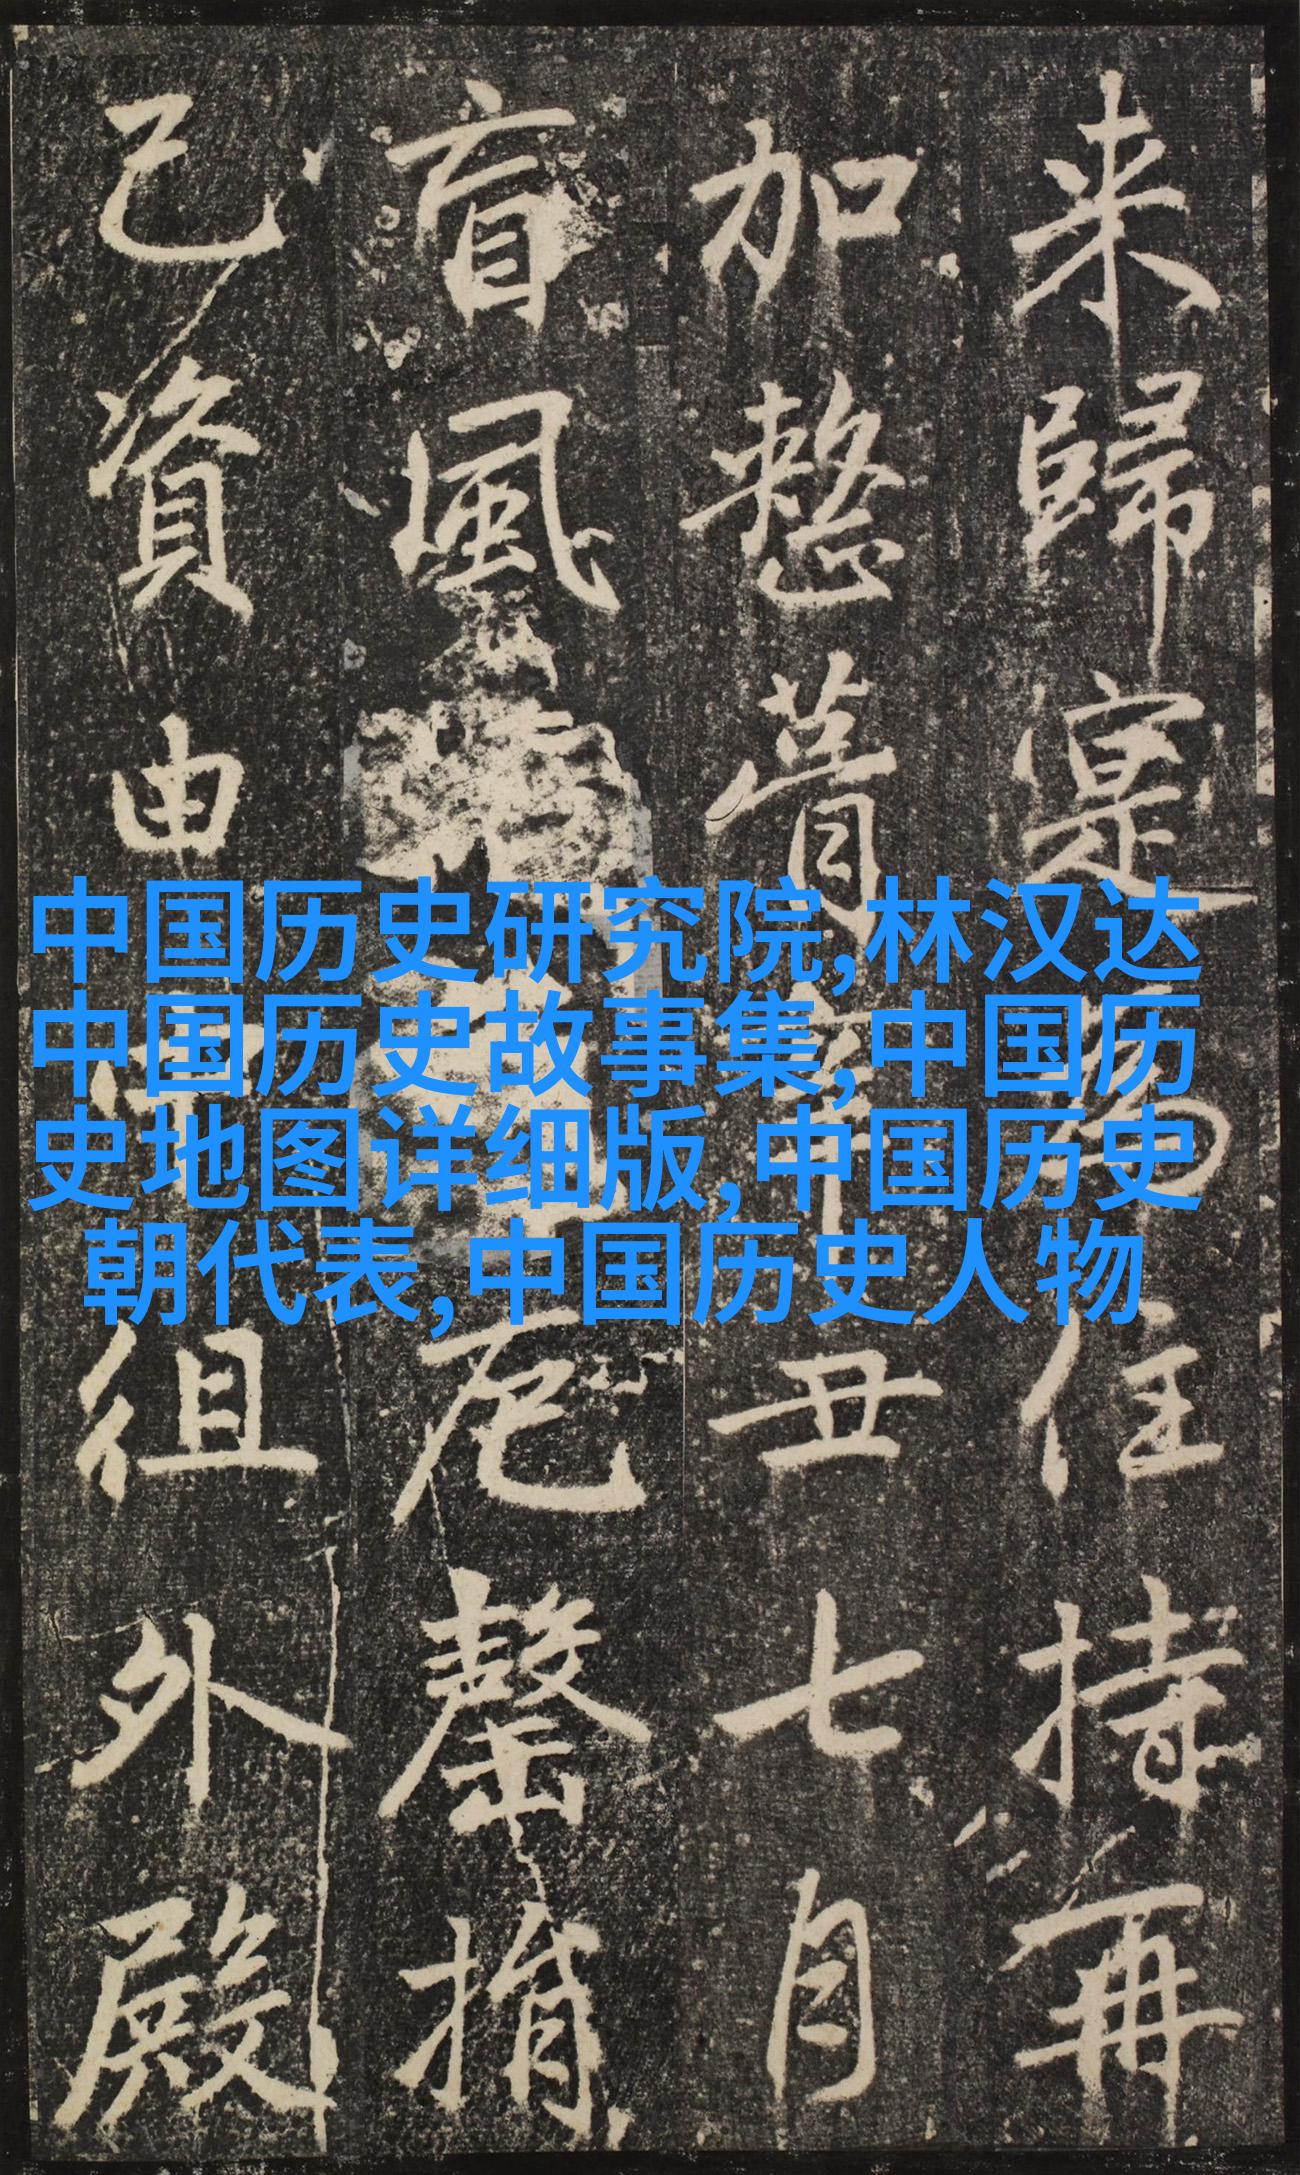 来歸寔为住持再
加整葺辛丑七月
盲風
厄罄捐
己資由
徂外殿
中国历史研究院,林汉达
中国历史故事集,中国历
史地图详细版,中国历史
朝代表,中国历史人物